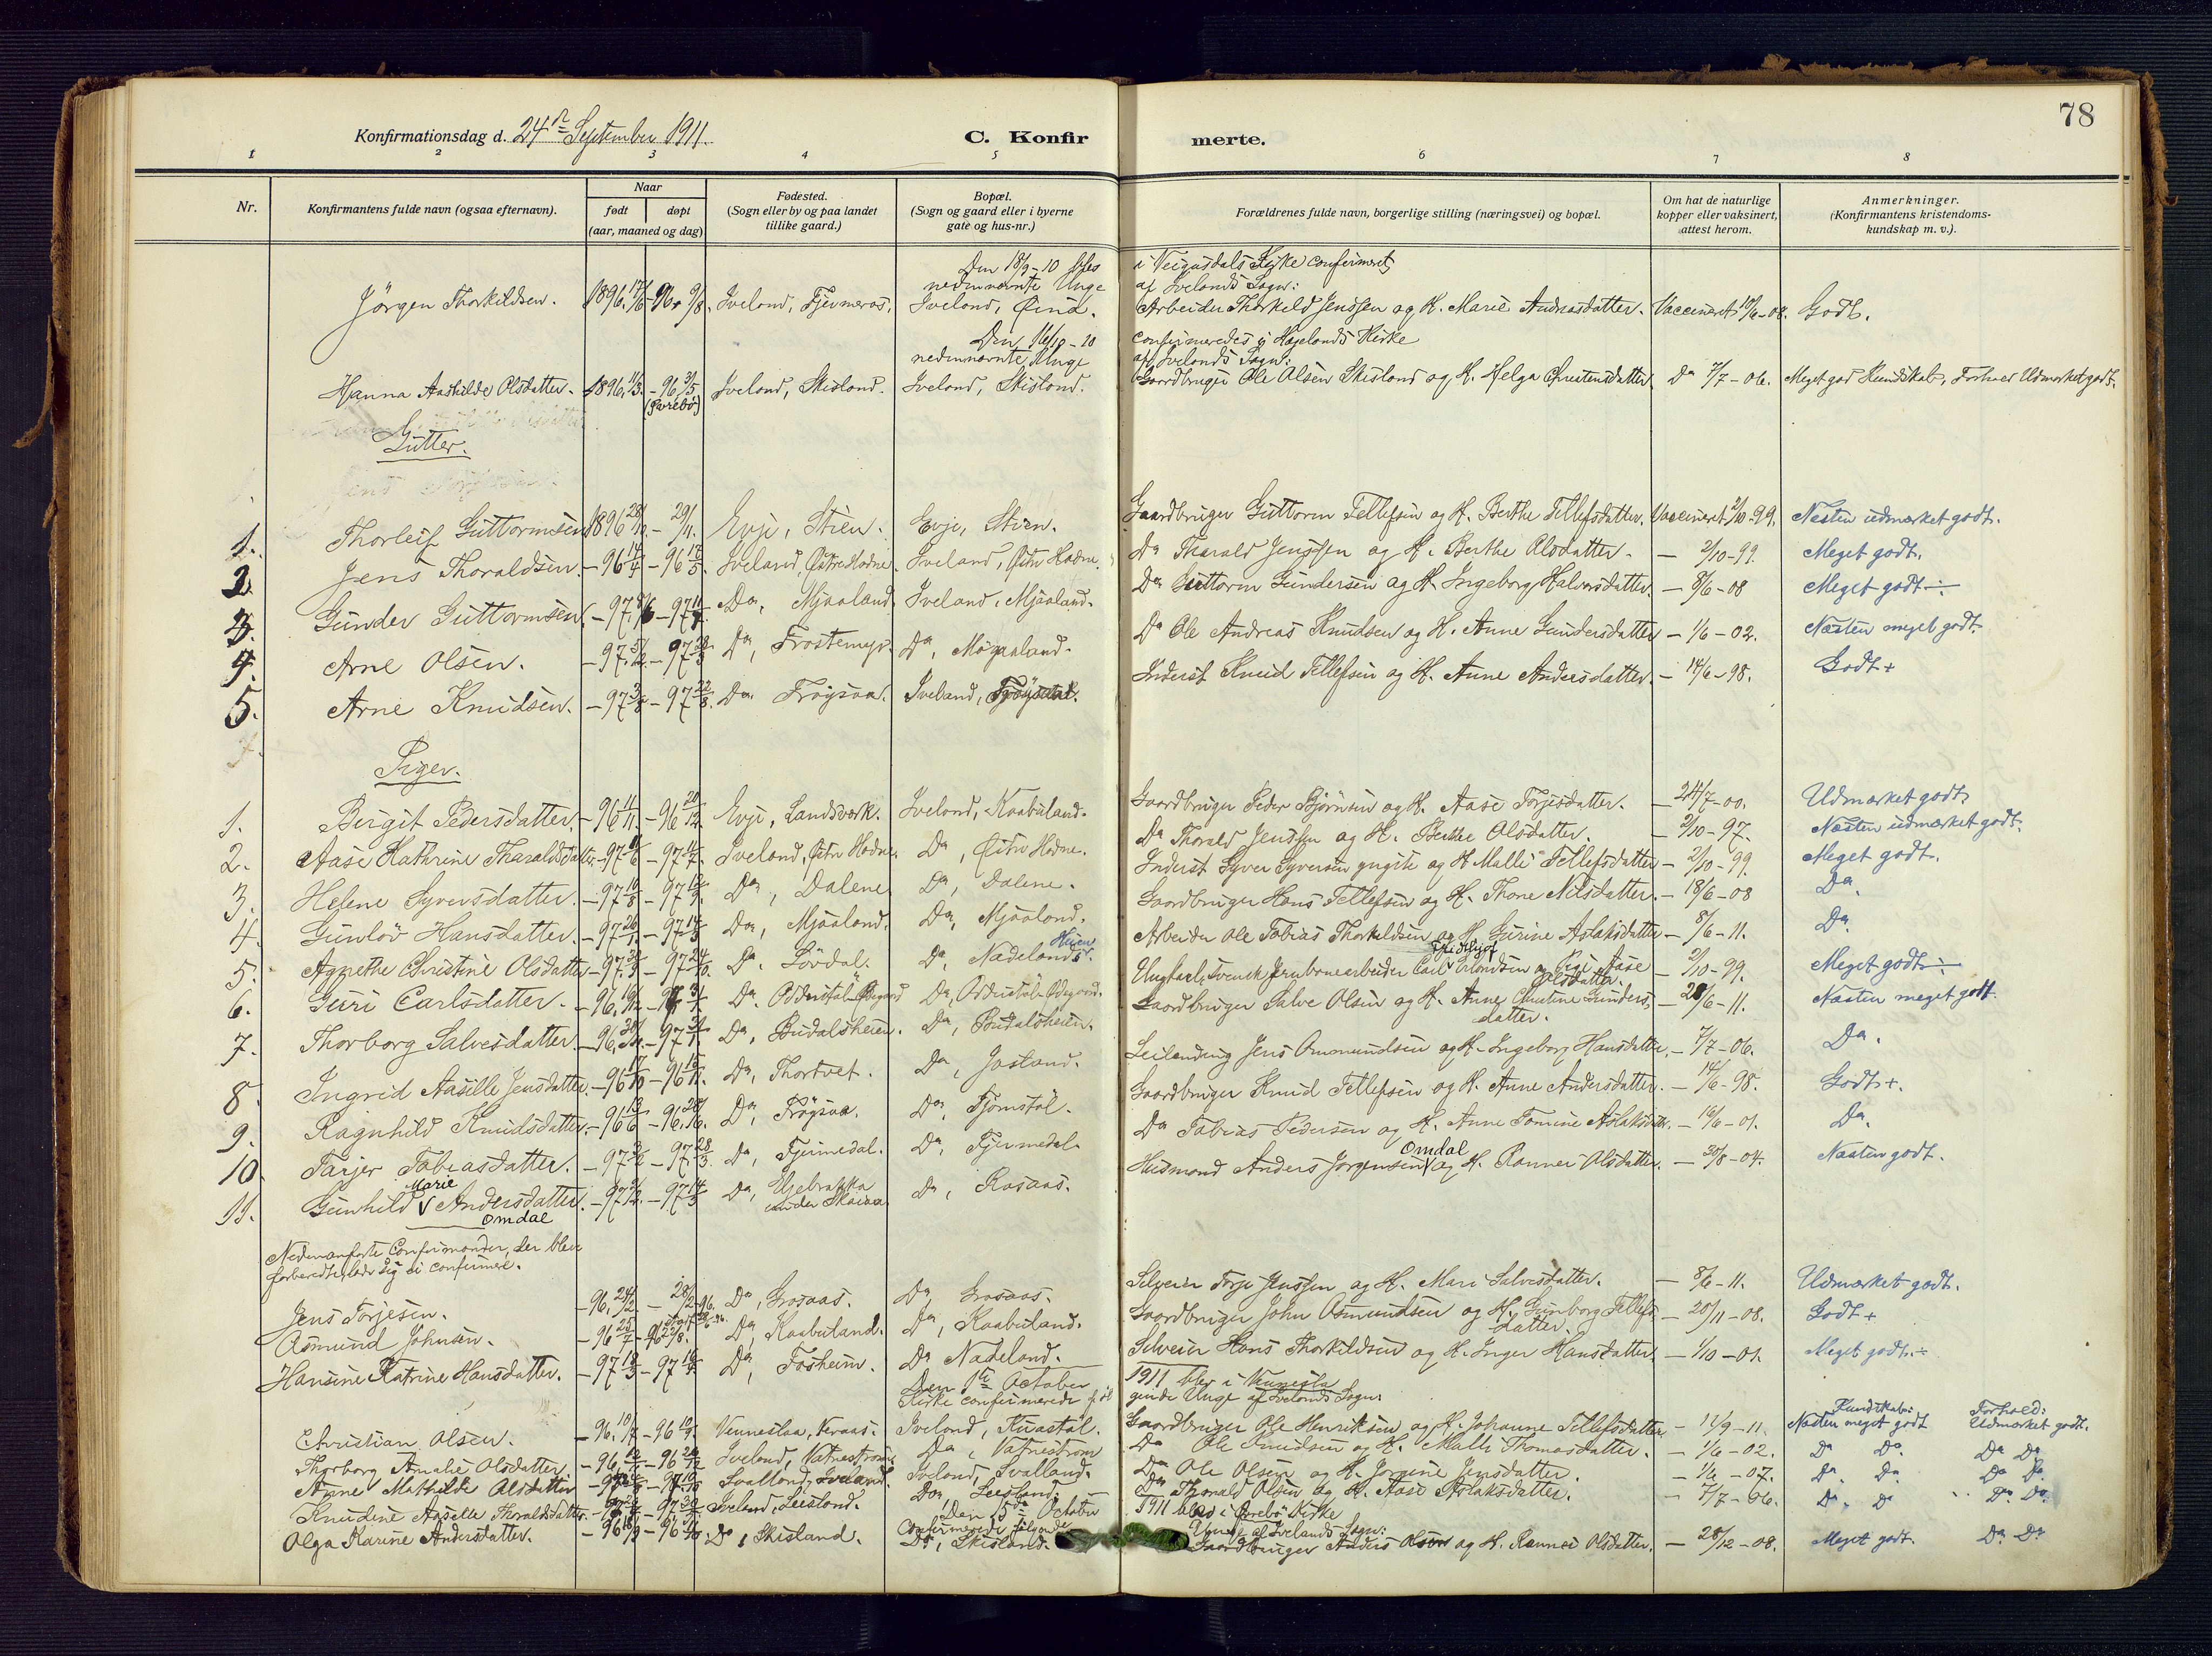 78
Konfirmationsdag d. 24de September 1911.
C. Konfirmerte.
1 2 3 4 5 6 7 8
Nr.
Konfirmantens fulde navn (ogsaa efternavn).
Naar
født
døpt
(aar, maaned og dag)
Fødested.
(Sogn eller by og paa landet
tillike gaard.)
Bopæl.
(Sogn og gaard eller i byerne
gate og hus-nr.)
Forældrenes fulde navn, borgerlige stilling (næringsvei) og bopæl.
Om hat de naturlige
kopper eller vaksinert,
attest herom.
Anmerkninger.
(Konfirmantens kristendoms-
kundskap m. v.).
Den 18/9-10 blev i Veigusdals Kirke confirmeret
nedennævnte Unge af Ivelands Sogn:
Jörgen Thorkildsen. 1896 17/6 - 96 9/8. Iveland, Fjermeros. Iveland, Eind. Arbeider Thorkild Jenssen og H. Marie Andreasdatter. Vaccineret 10/6-08. Godt.
Den 16/10-10 confirmeredes i Hægelands Kirke
nedennævnte Unge af Ivelands Sogn:
Hanna Aashilde Olsdatter. 1896 11/3. - 96 31/5. (Førebö) Iveland, Skisland. Iveland, Skisland. Gaardbruger Ole Olsen Skisland og H. Helga Christensdatter Do 7/7-06. Meget god Kundskab, Forhold Udmærket godt.
Gutter.
1. Thorleif Guttormsen 1896 28/10 - 29/11. Evje, Stien. Evje, Stien. Gaardbruger Guttorm Tellefsen og H. Berthe Tellefsdatter. Vaccineret 2/10-99. Næsten udmærket godt.
2. Jens Tharaldsen. - 96 14/4 - 96 17/5. Iveland, Østre Hodne. Iveland, Østre Hodne. Do Tharald Jenssen og H. Berthe Olsdatter. - 2/10-99. Meget godt.
3. Gunder Guttormsen. - 97 8/6 - 97 11/7. Do, Mjaaland. Iveland, Mjaaland. Do Guttorm Gundersen og H. Ingeborg Halvorsdatter. - 8/6-08 Meget godt ÷
4. Arne Olsen. - 97 5/2 - 97 28/3 Do, Frostemyr. Do, Mjaaland. Do Ole Andreas Knudsen og H. Anne Gundersdatter - 1/6-02. Næsten meget godt.
5. Arne Knudsen. - 97 3/8 - 97 22/8. Do Frøysaa. Iveland, Inderst Knud Tellefsen og H. Anne Andersdatter. - 14/6-98. Godt +
Piger.
1. Birgit Pedersdatter. - 96 11/11. - 96 20/12. Evje, Landsværk. Iveland, Kaabuland. Gaardbruger Peder Bjørnsen og H. Aase Torjesdatter. - 24/7-00. Udmærket godt.
2. Aase Kathrine Tharaldsdatter - 97 11/6 - 97 11/7. Iveland, Østre Hodne. Do, Østre Hodne. Do Tharald Jenssen og H. Berthe Olsdatter. - 2/10-97. Næsten udmærket godt.
3. Helene Syversdatter. - 97 10/8 - 97 12/9. Do, Dalene Do, Dalene. Inderst Syver Syversen yngste og H. Malli Tellefsdatter - 2/10-99. Meget godt.
4. Gunløv Hansdatter. - 97 26/1. - 97 14/3 Do, Mjaaland. Do, Mjaaland. Gaardbruger Hans Tellefsen og H. Thone Nilsdatter. - 18/6-08 Do.
5. Agnethe Christine Olsdatter - 97 30/9 - 97 24/10. Do. Lövdal. Do, Nadelands Heien. Arbeider Ole Tobias Thorkildsen og H. Gurine Aslaksdatter - 8/6-11. Do.
6. Guri Carlsdatter. - 96 19/12 - 97 31/1 Do. Oddestøl Ødegaard Do, Oddestøl Ødegaard. Ungkarl, svensk Jernbanearbeider Carl Erlandsen og Pige Aase Olsdatter. - 2/10-99. Meget godt ÷
7. Thorborg Salvesdatter. - 96 30/12. - 97 31/1. Do, Budalsheien. Do, Budalsheien. Gaardbruger Salve Olsen og H. Anne Christine Gundersdatter. - 28/6-11. Næsten meget godt.
8. Ingrid Aasille Jensdatter. - 96 17/10 - 96 15/11. Do, Thortvet. Do, Jaaland. Leilending Jens Omundsen og H. Ingeborg Hansdatter. - 7/7-06. Do.
9. Ragnhild Knudsdatter. - 96 13/6 - 96 28/6. Do, Frøysaa. Do, Fjomstøl. Gaardbruger Knud Tellefsen og H. Anne Andersdatter. - 14/6-98. Godt +.
10. Tarjer Tobiasdatter. - 97 3/2 - 97 28/3. Do, Fjermedal. Do, Fjermedal. Do Tobias Pedersen og H. Anne Tomine Aslaksdtr. - 16/6-01. Do.
11. Gunhild Marie Andersdatter Omdal. - 97 2/2. - 97 14/3 Do, Elgebrakka under Skaiaa Do, Rosaas. Husmand Anders Jørgensen Omdal og H. Rannei Olsdatter. - 30/8-04. Næsten godt.
Nedenanførte Confirmander, der blev
forberedte, lader sig ei confirmere.
Jens Torjesen. - 96 24/2. - 28/2-96. Do, Grosaas. Do Grosaas. Selveier Torje Jenssen og H. Mari Salvesdatter. - 8/6-11. Udmærket godt.
Asmund Johnsen. - 96 25/7 - 96 23/8. Do, Kaabuland. Do, Kaabuland. Gaardbruger John Osmundsen og H. Gunborg Tellefsdatter. - 20/11-08. Godt +
Hansine Katrine Hansdatter. - 97 19/3 - 97 19/4. Do, Fosheim. Do Nadeland. Selveier Hans Thorkildsen og H. Inger Hansdatter. - 1/10-01. Meget godt. ÷
Den 1ste October 1911 blev i Vennesla
Kirke confirmerede følgende Unge af Ivelands Sogn:
Kundskab: Forhold:
Christian Olsen. - 96 10/7 - 96 10/9. Vennesla, Neraas. Iveland, Kuastøl. Gaardbruger Ole Henriksen og H. Johanne Tellefsdatter - 12/9-11. Næsten meget godt Udmærket godt.
Thorborg Amalie Olsdatter - 96 12/11 - 96 26/12 Iveland, Vatnestrøm. Do, Vatnestrøm Do Ole Knudsen og H. Malli Thomasdatter. - 1/6-02. Do Do. Do Do
Anne Mathilde Olsdatter Svalland, Iveland. Iveland, Svalland. Do Ole Olsen og H. Jorgine Jensdatter. - 1/6-07. Do. Do. Do Do.
Knudine Aaselle Tharaldsdatter. Iveland, Leesland. Do, Leesland. Do Tharald Olsen og H. Aase Aslaksdatter. - 7/7-06. Do. Do Do. Do.
Den 15de October 1911 blev i Førebö Kirke
confirmerede følgende Unge af Ivelands Sogn:
Olga Karine Andersdatter. Do, Skisland. Do, Skisland. Gaardbruger Anders Olsen og H. Rannei Olsdatter. - 28/12-08. Meget godt. Do. Do